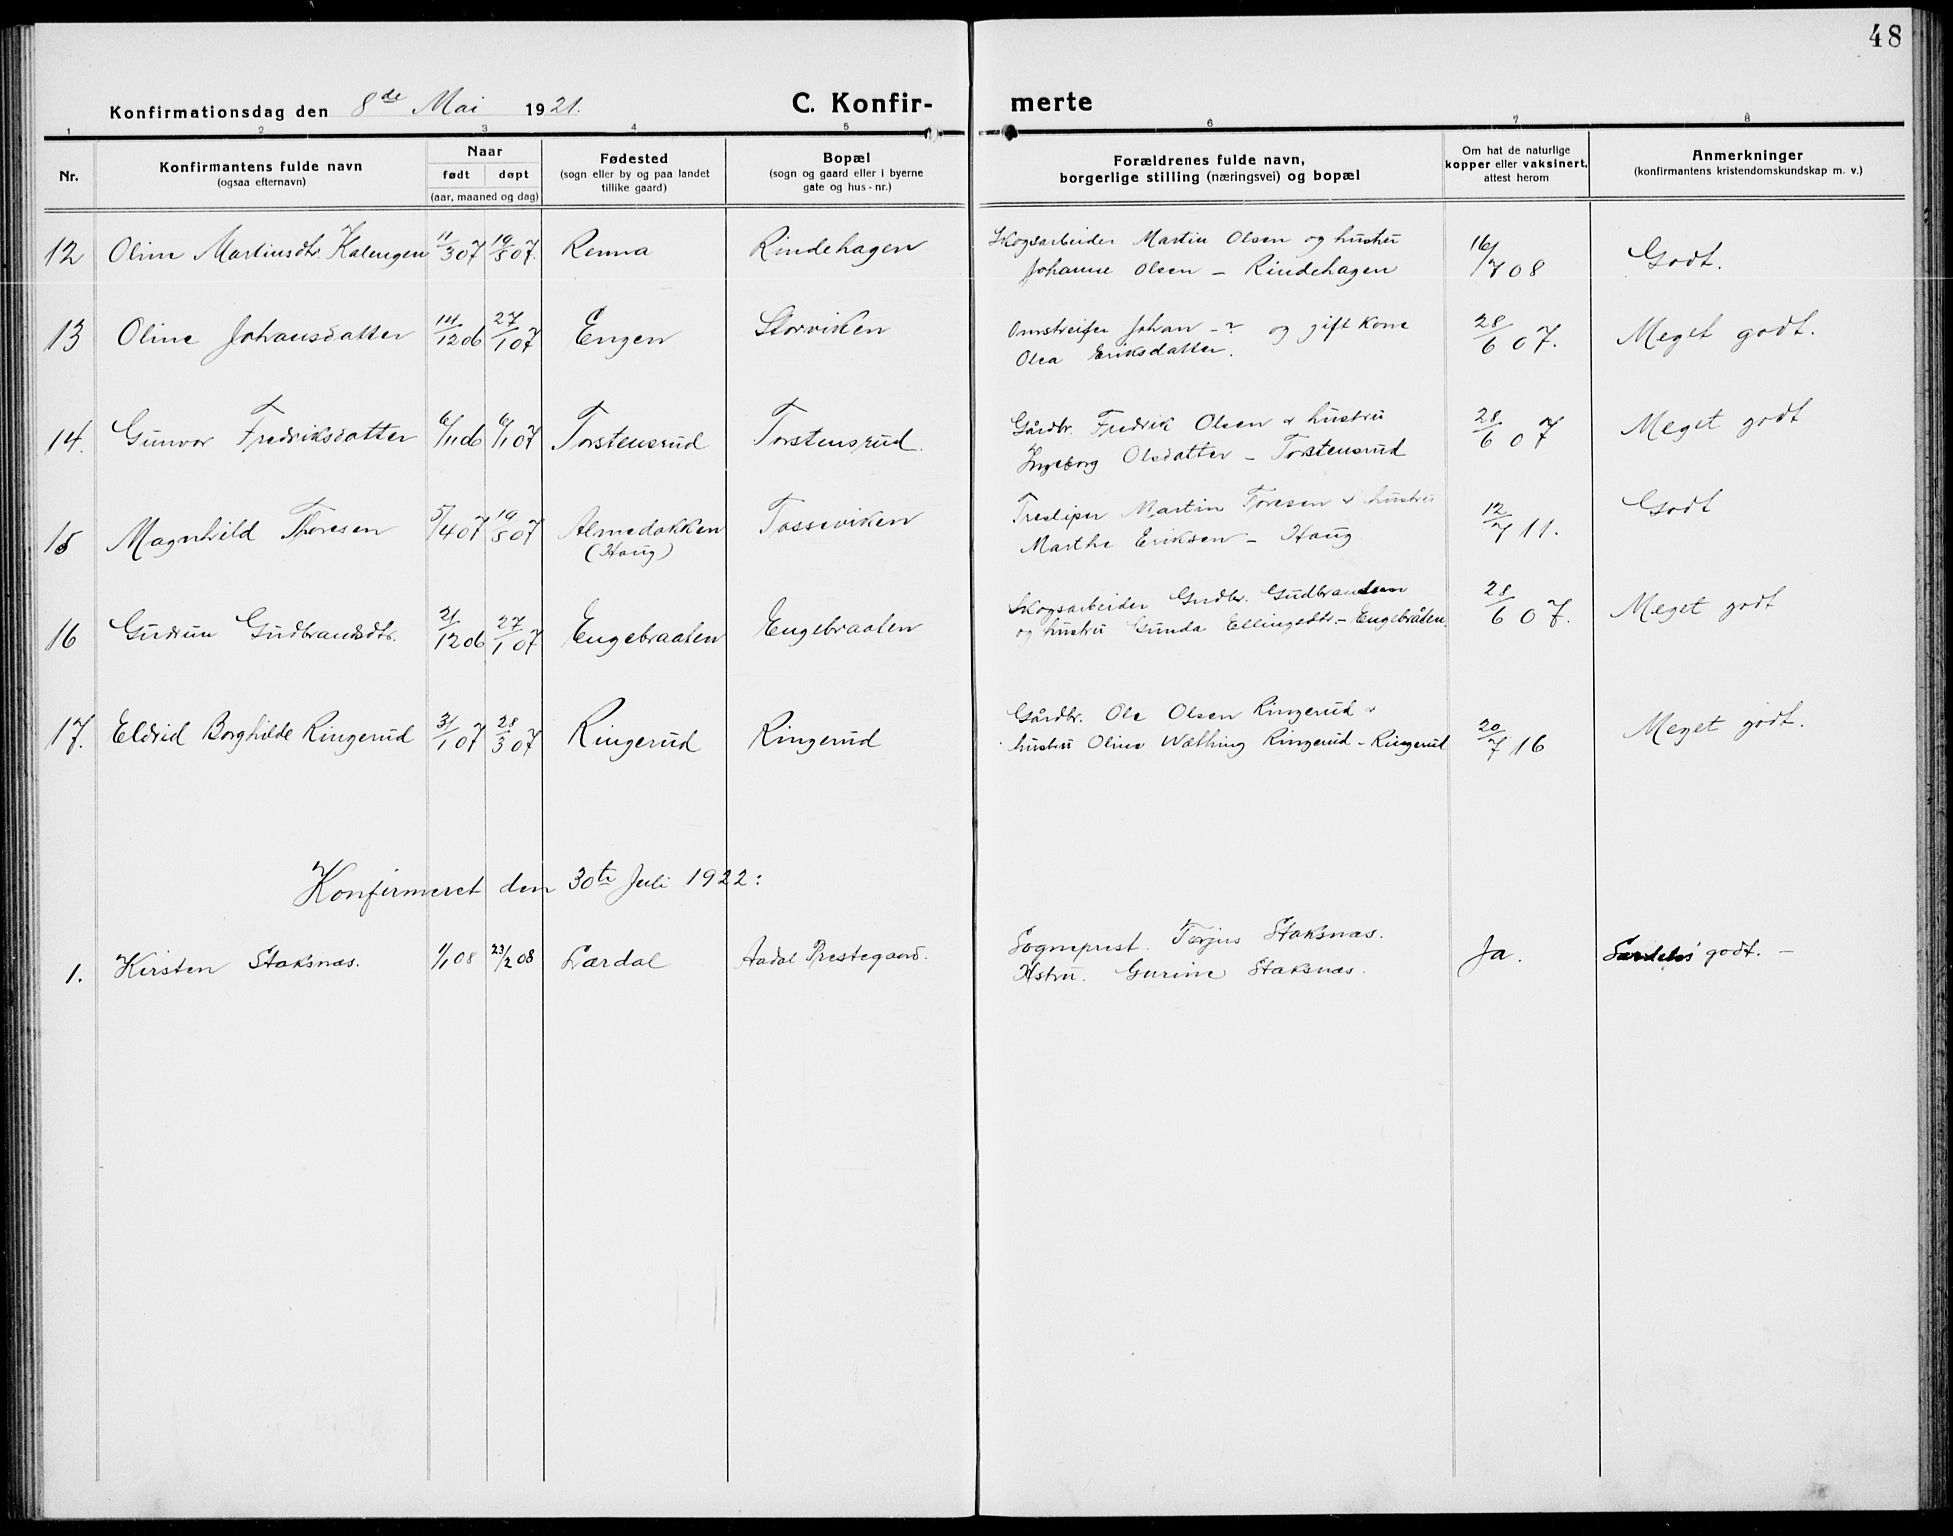 48
Konfirmationsdag den 8de Mai 1921. C. Konfir- merte
1 2 3 4 5 6 7 8
Nr. Konfirmantens fulde navn (ogsaa efternavn) Naar født døpt (aar, maaned og dag) Fødested (sogn eller by og paa landet tillike gaard) Bopæl (sogn og gaard eller i byerne gate og hus-nr.) Forældrenes fulde navn, borgerlige stilling (næringsvei) og bopæl Om hat de naturlige kopper eller vaksinert, attest herom Anmerkninger (konfirmantens kristendomskundskap m. v.)
12 Oline Martinsdtr. Kalengen 11/3 07 19/5 07. Renna Rindehagen Skogsarbeider Martin Olsen og hustru
Johanne Olsen – Rindehagen 16/7 08 Godt.
13 Oline Johansdatter 14/12 06 27/1 07 Engen Storviken Omstreifer Johan – ? og gift kone
Olea Eriksdatter. 28/6 07. Meget godt.
14. Gunvor Fredriksdatter 6/11 06 6/1 07 Torstensrud Torstensrud. Gårdbr. Fredrik Olsen & hustru
Ingeborg Olsdatter – Torstensrud 28/6 07 Meget godt
15 Magnhild Thoresen 5/4 07 19/5 07 Almedokken Tosseviken Tresliper Martin Toresen & hustru
(Haug) Marthe Eriksen – Haug 12/7 11. Godt
16 Gudrun Gudbrandsdtr. 21/12 06 27/1 07 Engebraaten Engebraaten Skogsarbeider Gudbr. Gudbrandsen
og hustru Gunda Ellingsdtr. – Engebråten. 28/6 07. Meget godt
17. Eldrid Borghilde Ringerud 31/1 07 28/3 07 Ringerud Ringerud Gårdbr. Ole Olsen Ringerud &
hustru Oline Wæthing Ringerud – Ringerud 20/7 16 Meget godt.
Konfirmeret den 30te Juli 1922:
1. Kirsten Staksnæs. 1/1 08 23/2 08 Lærdal Aadal Prestegaard. Sogneprest. Torjus Staksnæs.
Hstru. Gurine Staksnæs. Ja. Særdeles godt. –